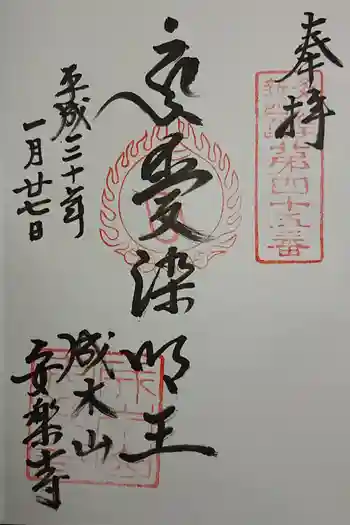 奉拝
第四十五番
愛染
明王
平成三十年
一月廿七日
成木山
安楽寺